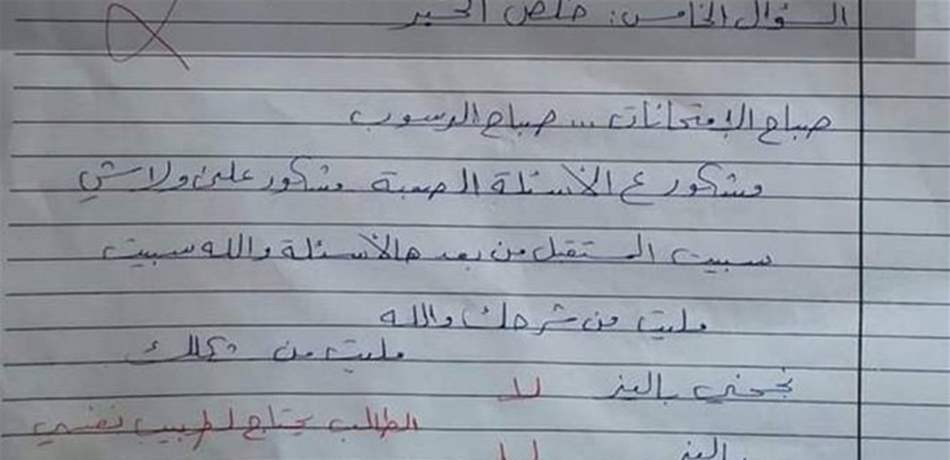 السؤال الخامس: خلص الحبر
صباح الإمتحانات ... صباح الرسوب
مشكور ع الأسئلة الصعبة مشكور علىٰ ولا شي
سبيت المستقبل من بعد هالأسئلة والله سبيت
مليت من شرحك والله
مليت من شكلك
نجحني باليز لا
الطالب يحتاج لطبيب نفسي
باليز لا